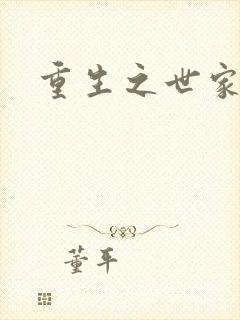 重生之世家
董平